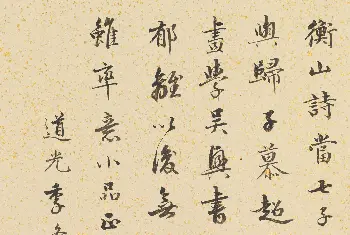 衡山詩當七子
與歸子慕趙
畫學吳興書
郁離以後無
雖率意小品正
道光季冬